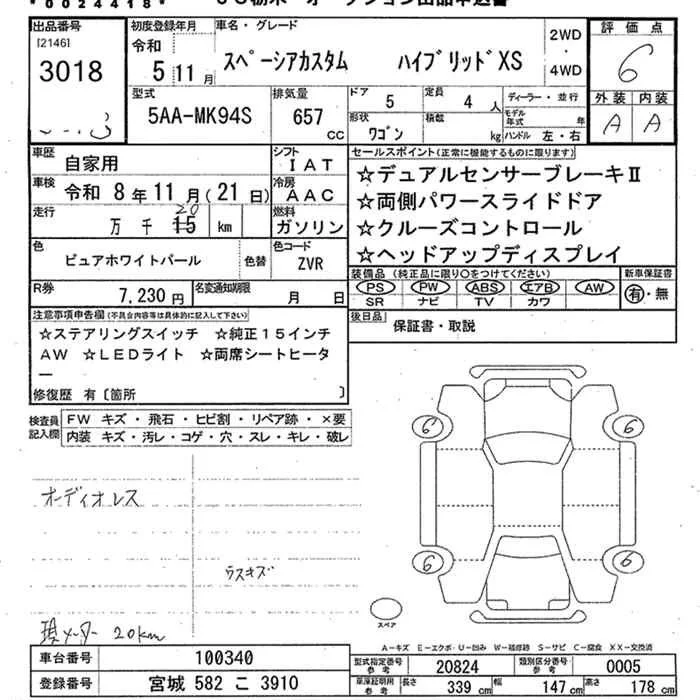 *0024418*
出品番号 初度登録年月 車名・グレード 2WD ・ 4WD 評価点
[2146]
3018
令和 5年11月
スペーシアカスタム ハイブリッドXS
6
外装 内装
A A
型式 5AA-MK94S
排気量 657 CC
ドア 5 定員 4人
形状 ワゴン 積載 kg
ディーラー・並行
モデル年式 年
ハンドル 左・右
車歴 自家用
シフト IAT
車検 令和 8年11月(21日)
冷房 AAC
走行 万 千 15 km
20
燃料 ガソリン
色 ピュアホワイトパール 色替
色コード ZVR
R券 7,230円 名変通知期限 月 日
セールスポイント(正常に機能するものに限ります)
☆デュアルセンサーブレーキⅡ
☆両側パワースライドドア
☆クルーズコントロール
☆ヘッドアップディスプレイ
装備品(純正品に限り○をつけてください) 新車保証書
PS PW ABS エアB AW 有・無
SR ナビ TV カワ
後日品 保証書・取説
注意事項申告欄(不具合内容等は具体的に記入して下さい)
☆ステアリングスイッチ ☆純正15インチ
AW ☆LEDライト ☆両席シートヒータ
ー
修復歴 有〔箇所 〕
検査員記入欄
FW キズ・飛石・ヒビ割・リペア跡・×要
内装 キズ・汚レ・コゲ・穴・スレ・キレ・破レ
6 6
オーディオレス
ラスキズ
6 6
スペア
現メーター 20km
A－キズ E－エクボ・U－凹み W－補修跡 S－サビ C－腐食 XX－交換済
車台番号 100340
型式指定番号参考 20824 類別区分番号参考 0005
登録番号 宮城 582 こ 3910
車庫証明用参考 長さ 339 cm 幅 147 cm 高さ 178 cm